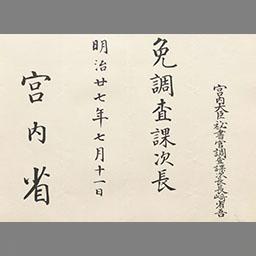 宮内大臣秘書官調査課次長長崎省吾
免調査課次長
明治廿七年七月十一日
宮内省